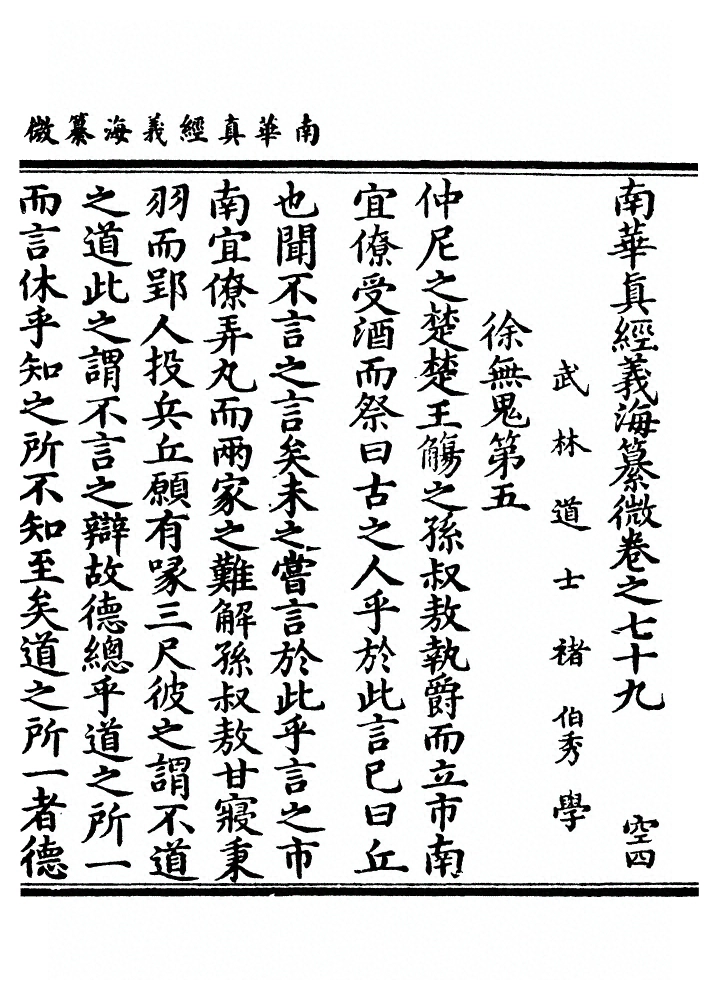 南華真經義海纂微
南華眞經義海纂微卷之七十九 空四
武林道士褚伯秀學
徐無鬼第五
仲尼之楚楚王觴之孫叔敖執爵而立市南
宜僚受酒而祭曰古之人乎於此言已曰丘
也聞不言之言矣未之嘗言於此乎言之市
南宜僚弄丸而兩家之難解孫叔敖甘寢秉
羽而郢人投兵丘願有喙三尺彼之謂不道
之道此之謂不言之辯故德總乎道之所一
而言休乎知之所不知至矣道之所一者德